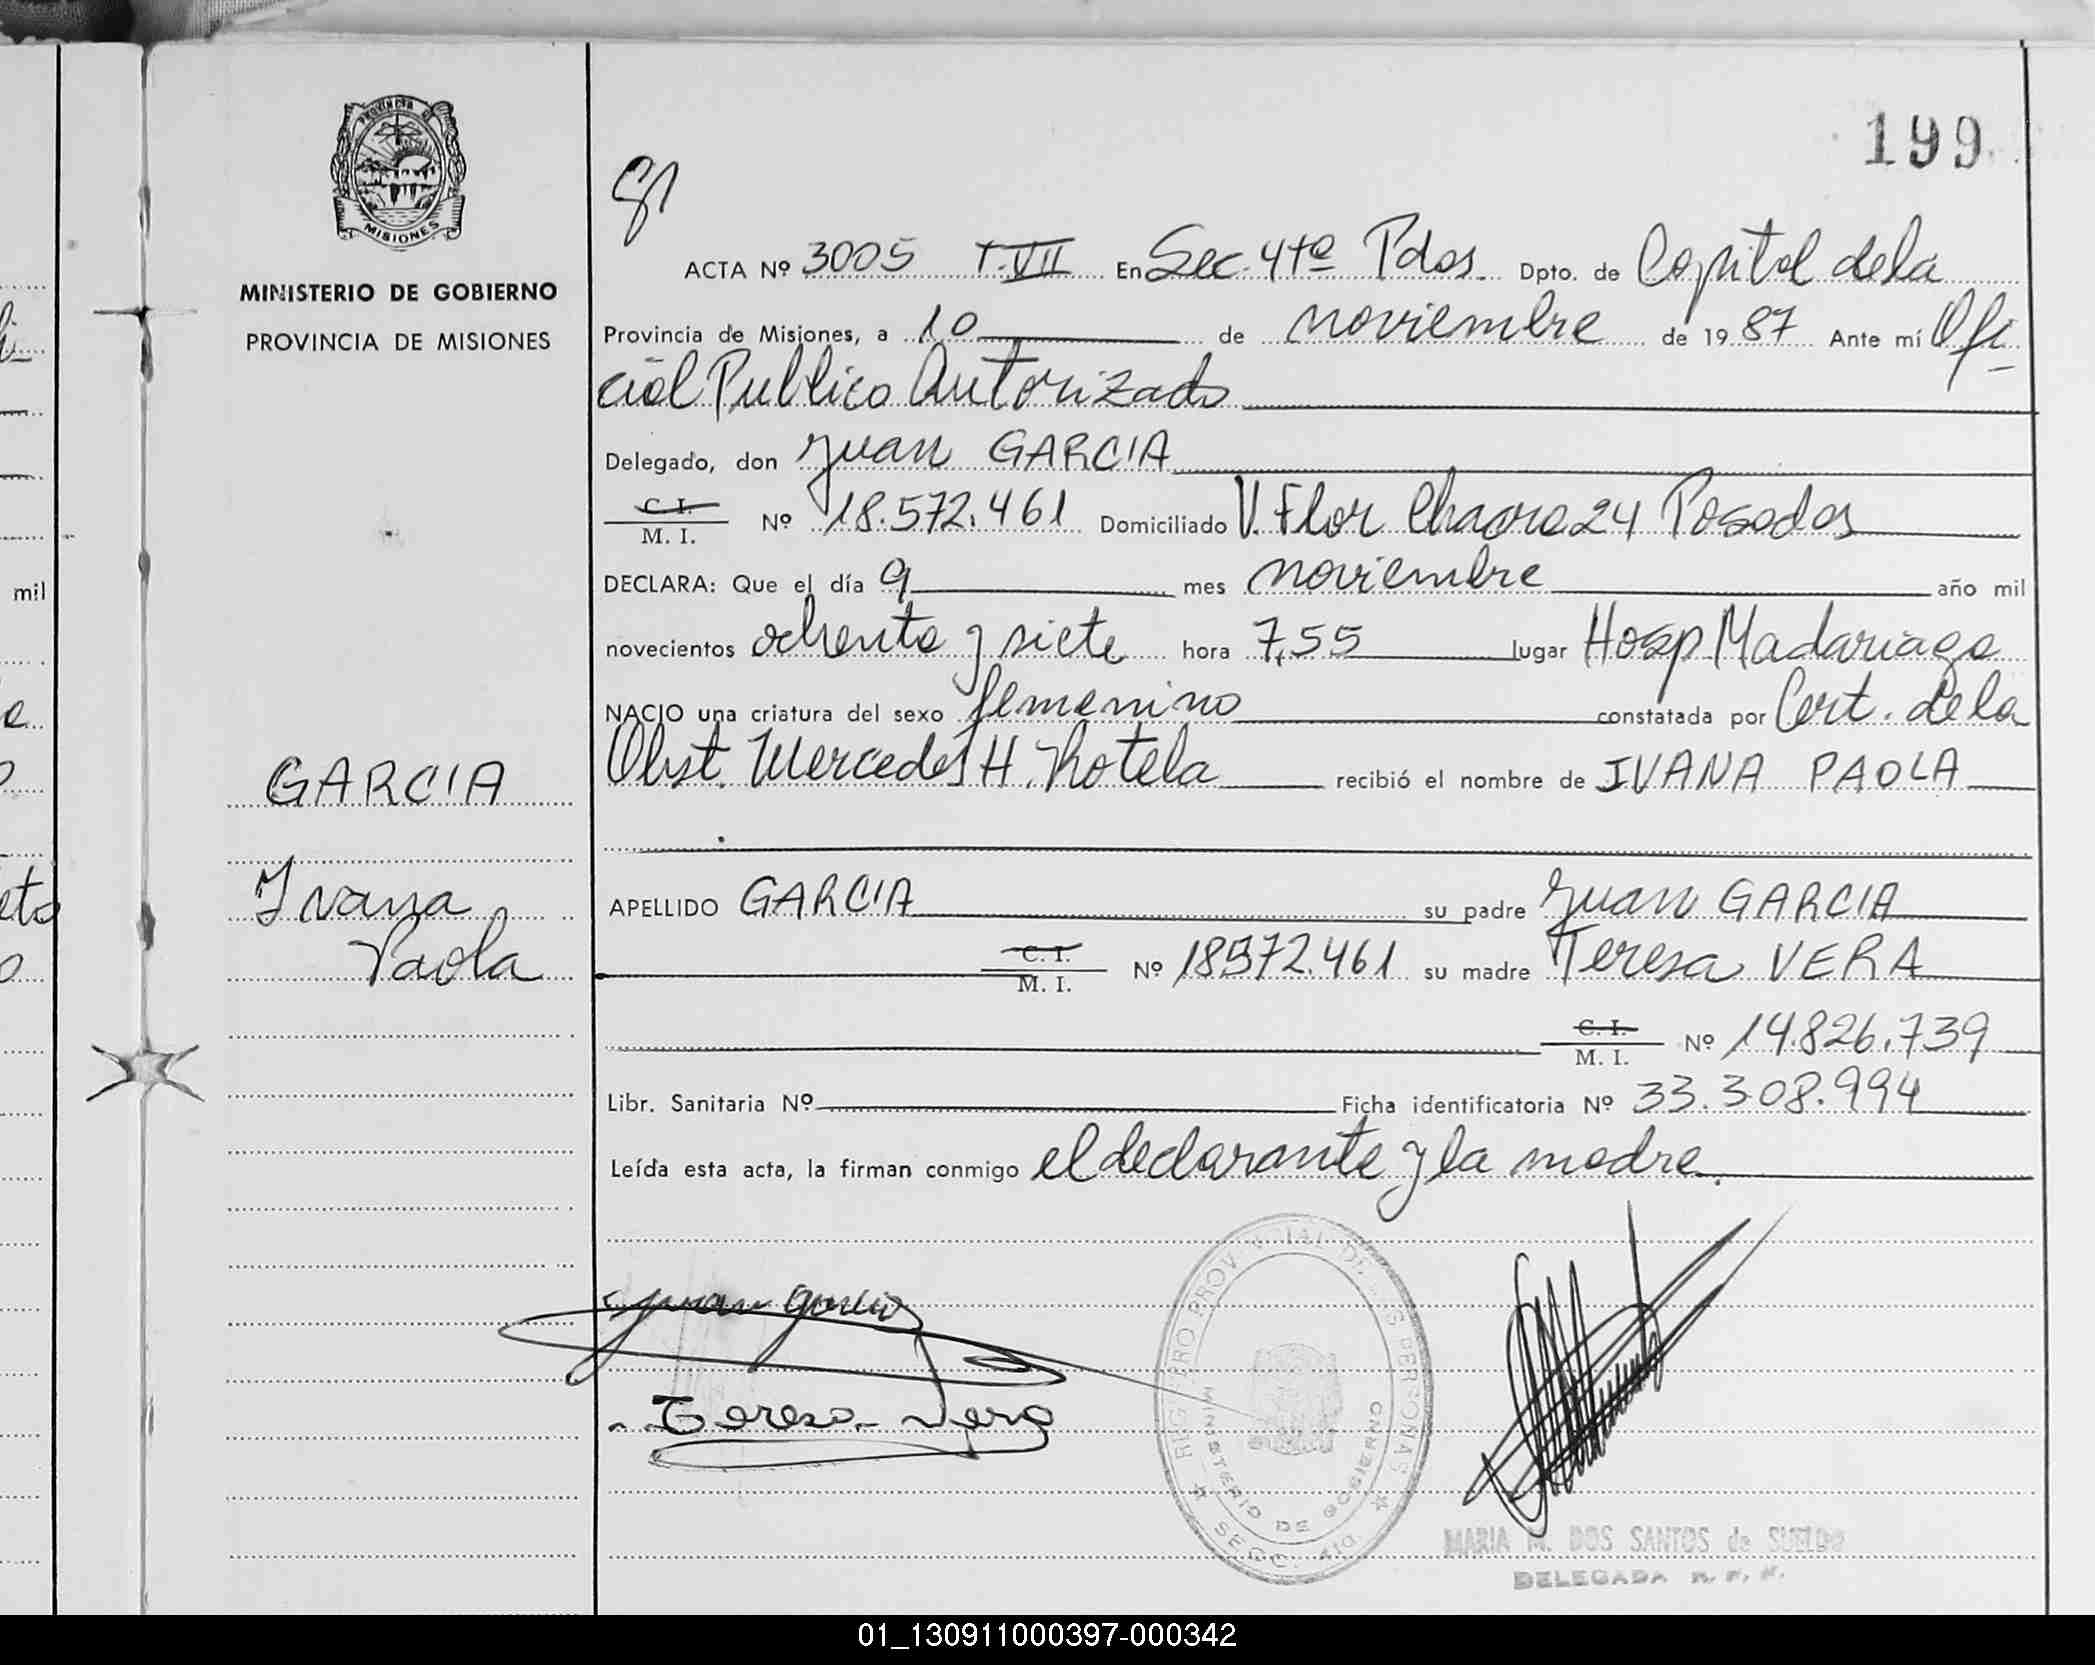 199
PROVINCIA DE
MISIONES
MINISTERIO DE GOBIERNO
PROVINCIA DE MISIONES
ACTA Nº 3005 T.VII En Sec. 4ta Pdas. Dpto. de Capital de la
Provincia de Misiones, a 10 de noviembre de 1987 Ante mí Ofi-
cial Publico Autorizado
Delegado, don Juan GARCIA
C. I.
M. I. Nº 18.572.461 Domiciliado V. Flor Chacra 24 Posadas
DECLARA: Que el día 9 mes noviembre año mil
novecientos ochenta y siete hora 7,55 lugar Hosp Madariaga
NACIO una criatura del sexo femenino constatada por Cert. de la
Obst. Mercedes H. Rotela recibió el nombre de IVANA PAOLA
APELLIDO GARCIA su padre Juan GARCIA
C. I.
M. I. Nº 18572.461 su madre Teresa VERA
C. I.
M. I. Nº 14.826.739
Libr. Sanitaria Nº Ficha identificatoria Nº 33.308.994
Leída esta acta, la firman conmigo el declarante y la madre.
GARCIA
Ivana
Paola
Juan Garcia
Teresa Vera
REGISTRO PROVINCIAL DE LAS PERSONAS
MINISTERIO DE GOBIERNO
SECC. 4ta
MARIA M. DOS SANTOS de SUELDO
DELEGADA R. P. P.
mil
01_130911000397-000342